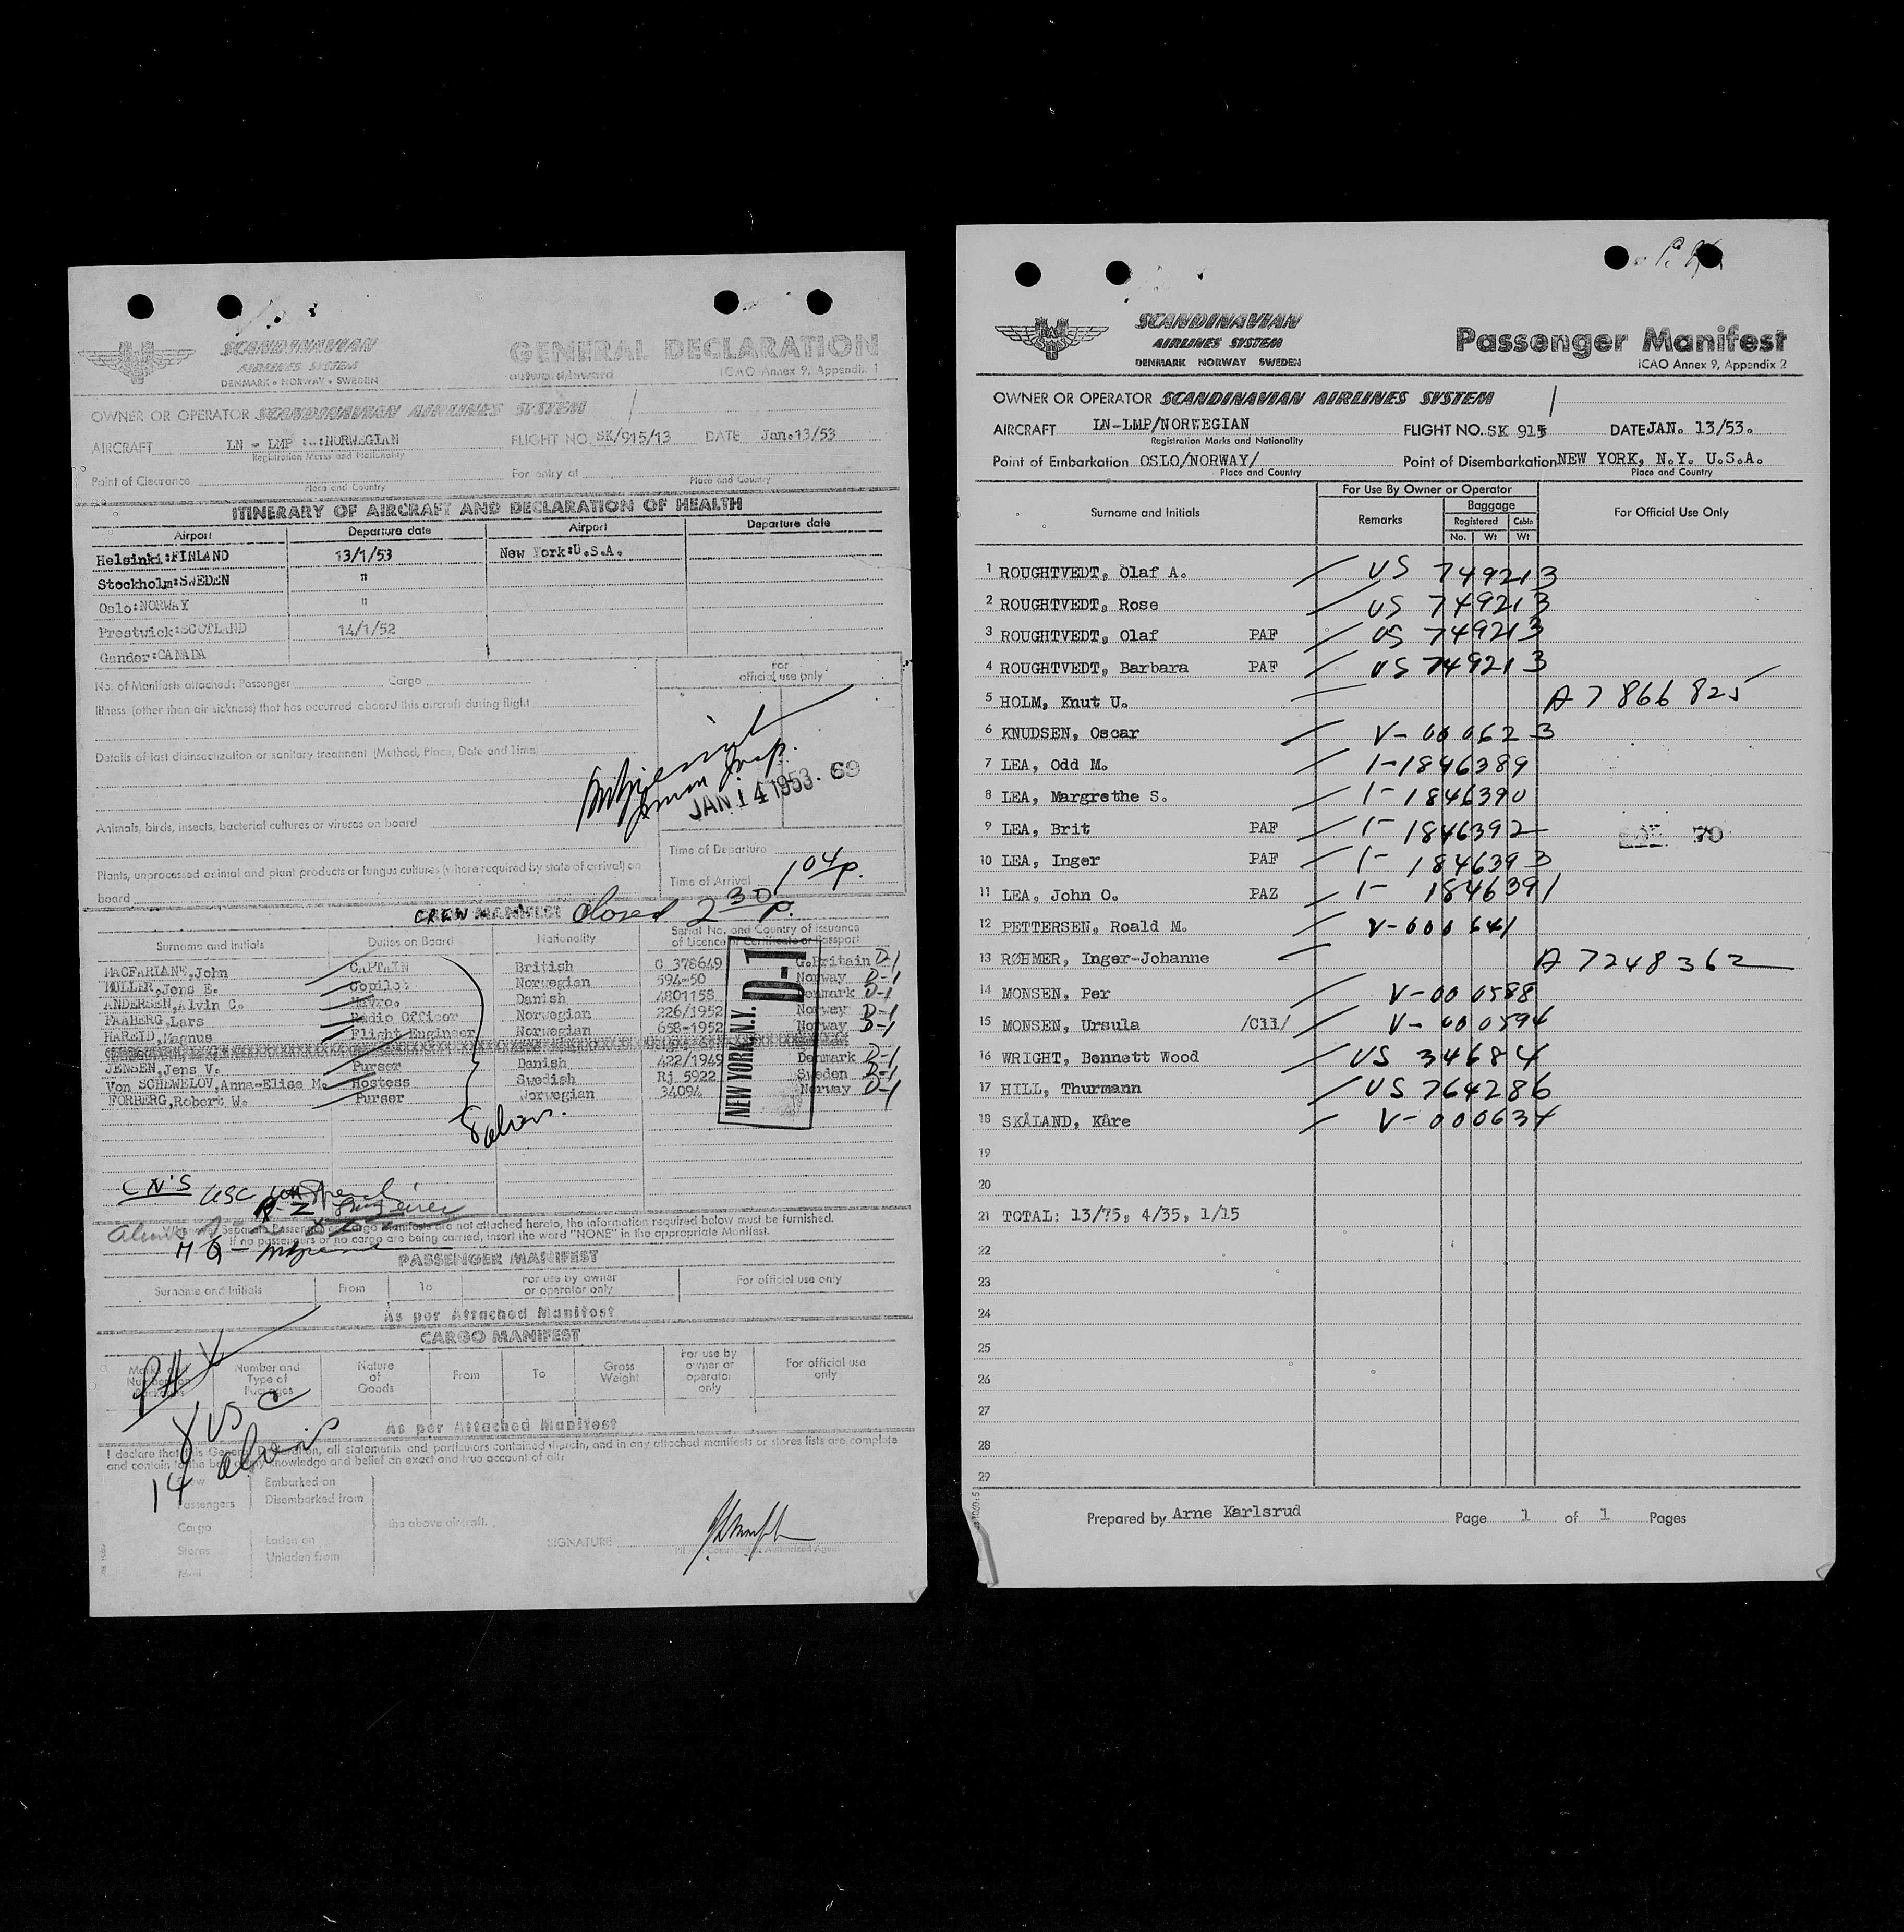 SCANDINAVIAN
AIRLINES SYSTEM
DENMARK • NORWAY • SWEDEN
GENERAL DECLARATION
outward/inward
ICAO Annex 9, Appendix 1
OWNER OR OPERATOR SCANDINAVIAN AIRLINES SYSTEM
AIRCRAFT LN - LMP :-:NORWEGIAN FLIGHT NO. SK/915/13 DATE Jan.13/53
Registration Marks and Nationality
Point of Clearance For entry at
Place and Country Place and Country
ITINERARY OF AIRCRAFT AND DECLARATION OF HEALTH
Airport Departure date Airport Departure date
Helsinki:FINLAND 13/1/53 New York:U.S.A.
Stockholm:SWEDEN "
Oslo:NORWAY "
Prestwick:SCOTLAND 14/1/52
Gander:CANADA
No. of Manifests attached: Passenger Cargo
For official use only
Illness (other than air sickness) that has occurred aboard this aircraft during flight
Details of last disinsectization or sanitary treatment (Method, Place, Date and Time)
JAN 14 1953. 69
Animals, birds, insects, bacterial cultures or viruses on board
Time of Departure
Plants, unprocessed animal and plant products or fungus cultures (where required by state of arrival) on board
Time of Arrival 1 04 p.
CREW MANIFEST closed 2 30 p.
Surname and Initials Duties on Board Nationality Serial No. and Country of issuance of Licence or Certificate or Passport
MACFARLANE,John CAPTAIN British C 378649 G.Britain D-1
MULLER,Jens E. Copilot Norwegian 594-50 Norway D-1
ANDERSEN,Alvin C. Navro. Danish 4801158 Denmark D-1
FAABERG,Lars Radio Officer Norwegian 226/1952 Norway D-1
HAREID,Magnus Flight Engineer Norwegian 658-1952 Norway D-1
JENSEN,Jens V. Purser Danish 422/1949 Denmark D-1
Von SCHEWELOV,Anna-Elise M. Hostess Swedish RJ 5922 Sweden D-1
FORBERG,Robert W. Purser Norwegian 34094 Norway D-1
NEW YORK, N.Y. D-1
8 aliens.
CN'S USC
Separate Passenger or Cargo Manifests are not attached hereto, the information required below must be furnished.
If no passengers or no cargo are being carried, insert the word "NONE" in the appropriate Manifest.
PASSENGER MANIFEST
Surname and Initials From To For use by owner or operator only For official use only
As per Attached Manifest
CARGO MANIFEST
Marks and Number on Packages Number and Type of Packages Nature of Goods From To Gross Weight For use by owner or operator only For official use only
As per Attached Manifest
USC
14 aliens
I declare that this General Declaration, all statements and particulars contained therein, and in any attached manifests or stores lists are complete
and contain to the best of my knowledge and belief an exact and true account of all:
Crew Embarked on
Passengers Disembarked from
Cargo the above aircraft.
Stores Laden on
Mail Unladen from
SIGNATURE
Pilot-in-Command or Authorized Agent
SCANDINAVIAN
AIRLINES SYSTEM
DENMARK NORWAY SWEDEN
Passenger Manifest
ICAO Annex 9, Appendix 2
OWNER OR OPERATOR SCANDINAVIAN AIRLINES SYSTEM
AIRCRAFT LN-LMP/NORWEGIAN FLIGHT NO. SK 915 DATE JAN. 13/53.
Registration Marks and Nationality
Point of Embarkation OSLO/NORWAY/ Point of Disembarkation NEW YORK, N.Y. U.S.A.
Place and Country Place and Country
Surname and Initials For Use By Owner or Operator For Official Use Only
Remarks Baggage
Registered Cabin
No. Wt Wt
1 ROUGHTVEDT, Olaf A. US 749213
2 ROUGHTVEDT, Rose US 749213
3 ROUGHTVEDT, Olaf PAF US 749213
4 ROUGHTVEDT, Barbara PAF US 749213
5 HOLM, Knut U. A 7 866 825
6 KNUDSEN, Oscar V-000623
7 LEA, Odd M. 1-1846389
8 LEA, Margrethe S. 1-1846390
9 LEA, Brit PAF 1-1846392
10 LEA, Inger PAF 1-1846393
11 LEA, John O. PAZ 1-1846391
12 PETTERSEN, Roald M. V-000641
13 RØHMER, Inger-Johanne A 7248362
14 MONSEN, Per V-000588
15 MONSEN, Ursula /Cii/ V-000594
16 WRIGHT, Bennett Wood US 34684
17 HILL, Thurmann US 764286
18 SKÅLAND, Kåre V-000634
70
19
20
21 TOTAL: 13/75, 4/35, 1/15
22
23
24
25
26
27
28
29
Prepared by Arne Karlsrud Page 1 of 1 Pages